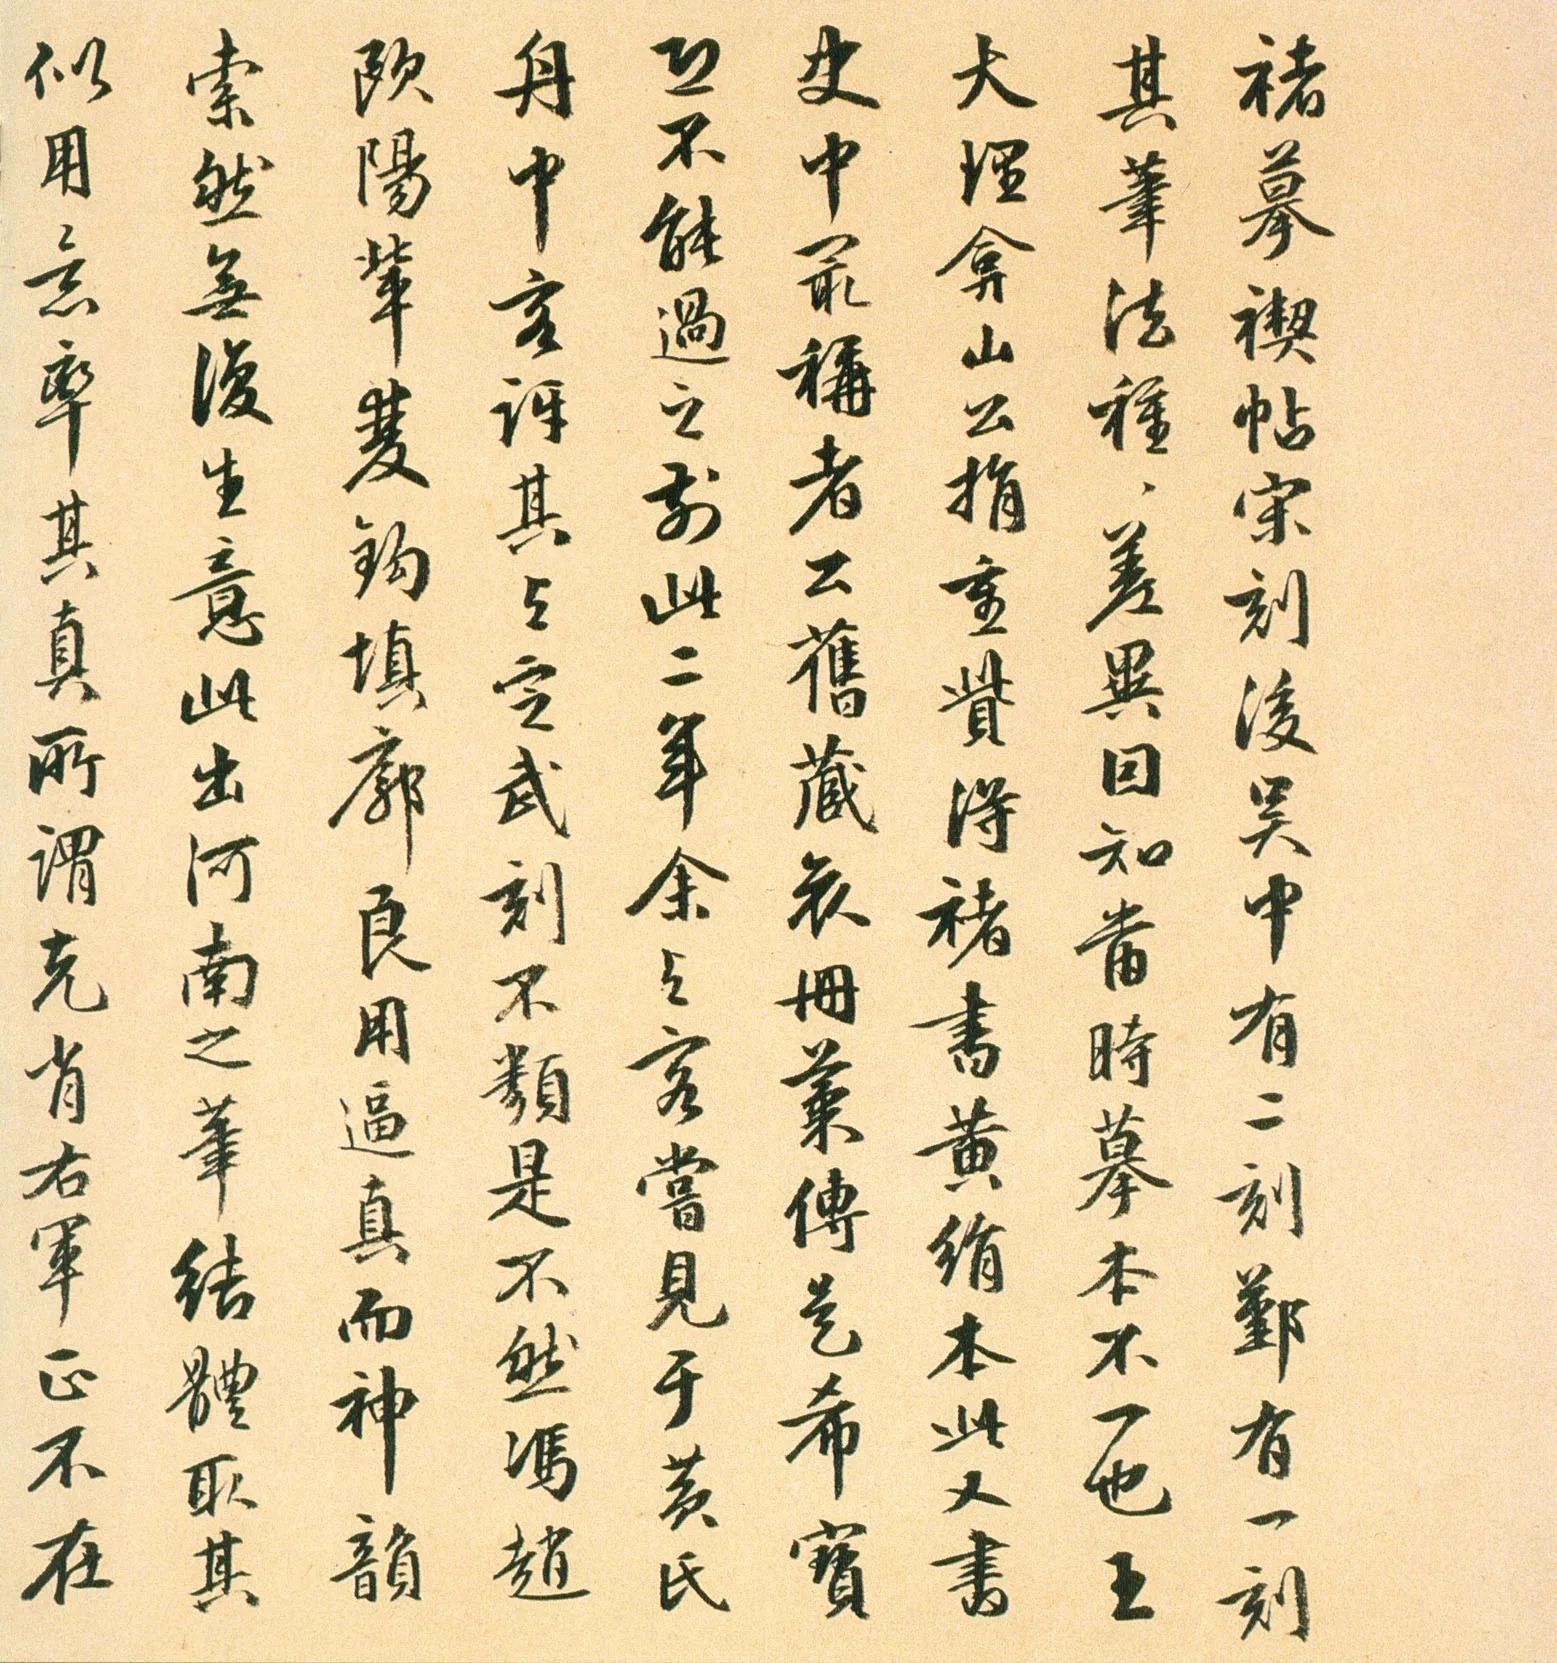 褚摹禊帖宋刻後吳中有二刻鄞有一刻
其筆法種、差異因知當時摹本不一也王
大理弇山公捐重貲得褚書黃絹本此又書
史中最稱者公舊藏衰冊葉傳是希寶
恐不能過之前此二年余與客嘗見于黃氏
舟中客訝其與定武刻不類是不然馮趙
歐陽輩雙鉤填廓良用逼真而神韻
索然無復生意此出河南之筆結體取其
似用意率其真所謂克肖右軍正不在